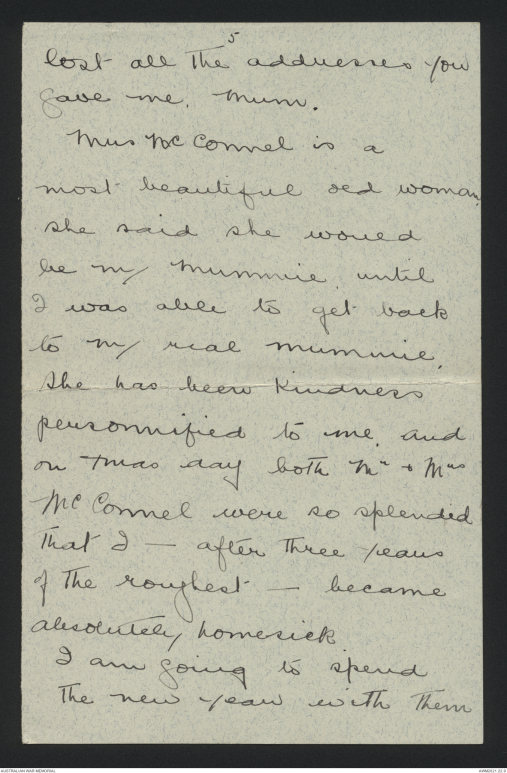 5
lost all the addresses you
gave me. Mum.
Mrs McConnel is a
most beautiful old woman,
she said she would
be my Mummie until
I was able to get back
to my real mummie.
She has been Kindness
personnified to me, and
on Xmas day both Mr & Mrs
McConnel were so splendid
that I — after three years
of the roughest — became
absolutely homesick
I am going to spend
the new year with them
AUSTRALIAN WAR MEMORIAL